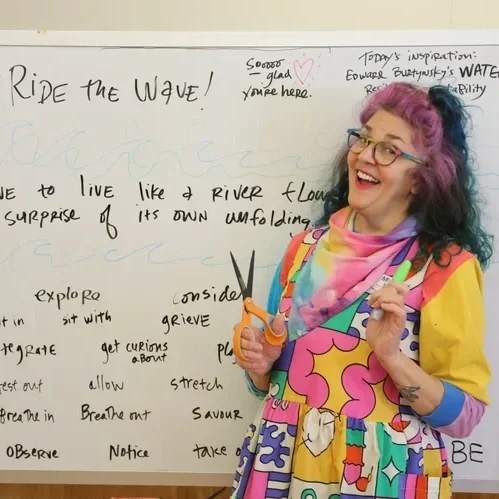 RIDE THE WAVE!
Sooooo
glad
you're here.
Today's inspiration:
Edward Burtynsky's WATE
TO LIVE LIKE A RIVER FLOW
SURPRISE OF ITS OWN UNFOLDING
explore
conside
sit with
GRIEVE
get curious
about
allow
stretch
Breathe in
Breathe out
SAVOUR
OBSERVE
NOTICE
take
BE